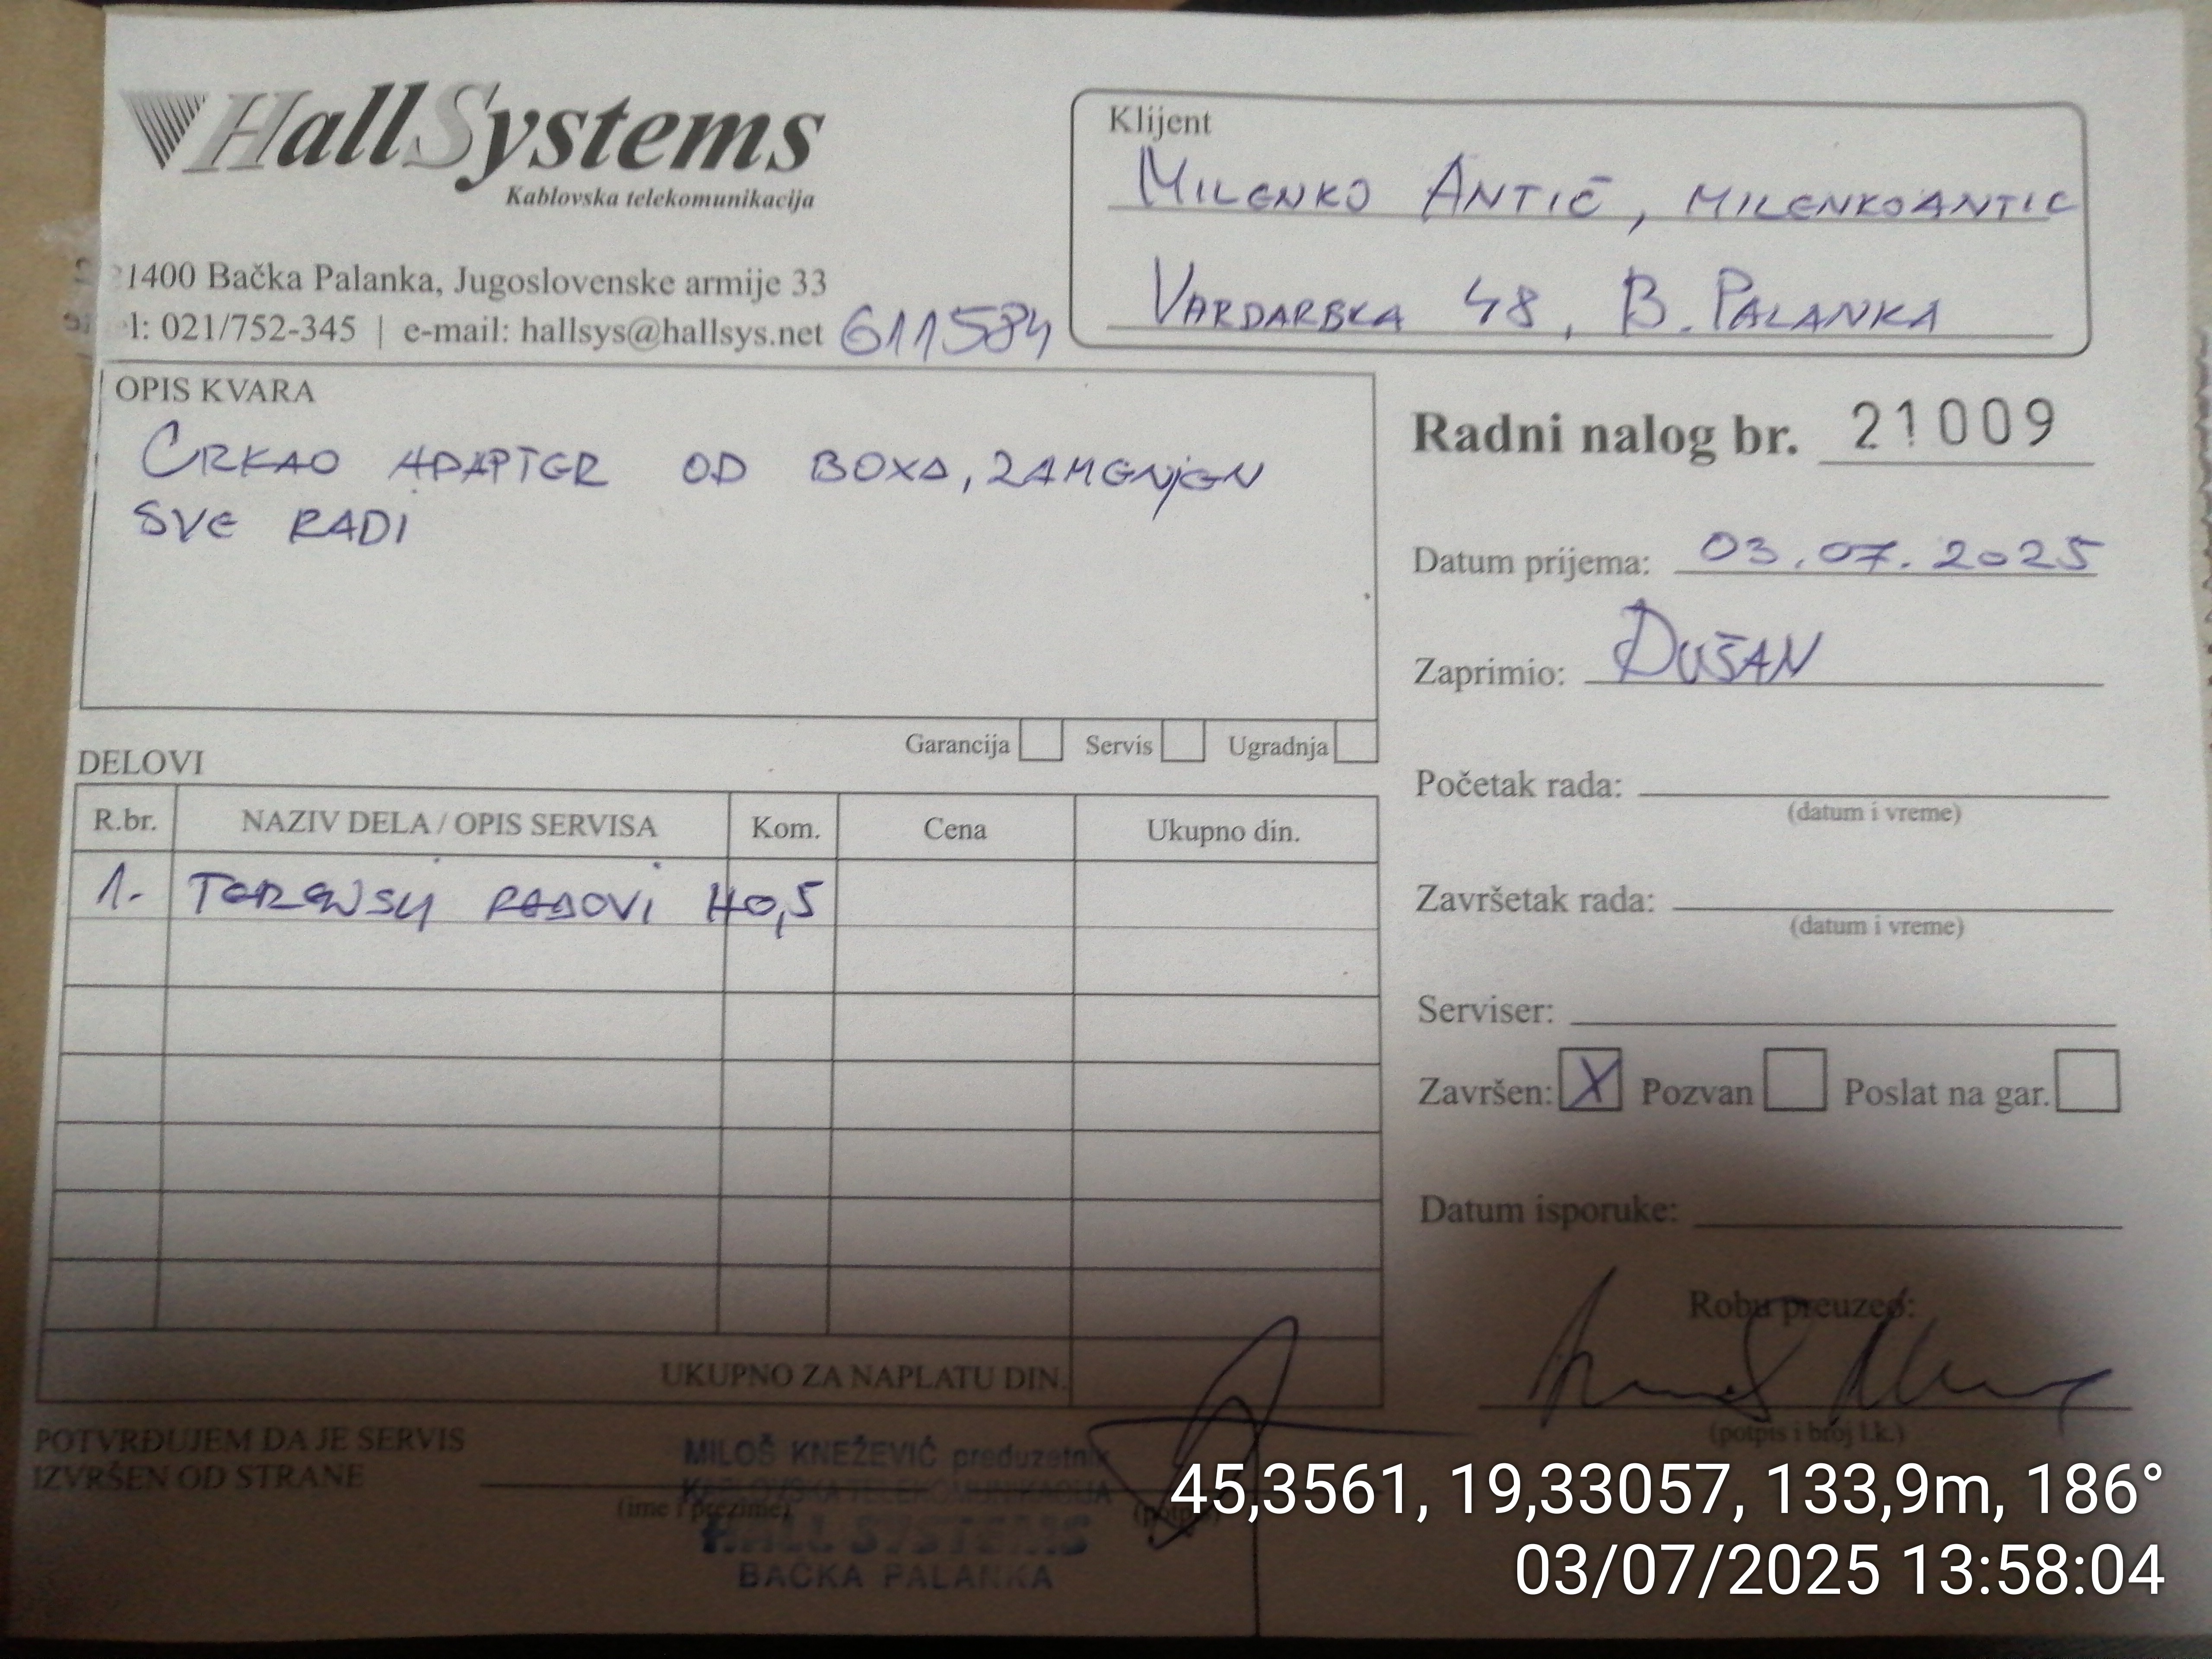 HallSystems
Kablovska telekomunikacija
21400 Bačka Palanka, Jugoslovenske armije 33
l: 021/752-345 | e-mail: hallsys@hallsys.net 611584
Klijent
MILENKO ANTIĆ, MILENKOANTIC
VARDARSKA 48, B. PALANKA
OPIS KVARA
CRKAO ADAPTER OD BOXA, ZAMENJEN
SVE RADI
Garancija Servis Ugradnja
Radni nalog br. 21009
Datum prijema: 03.07.2025
Zaprimio: DUŠAN
Početak rada:
(datum i vreme)
Završetak rada:
(datum i vreme)
Serviser:
Završen: X Pozvan Poslat na gar.
Datum isporuke:
Robu preuzeo:
(potpis i broj l.k.)
DELOVI
R.br. NAZIV DELA / OPIS SERVISA Kom. Cena Ukupno din.
1. TERENSKI RADOVI H0,5
UKUPNO ZA NAPLATU DIN.
POTVRĐUJEM DA JE SERVIS
IZVRŠEN OD STRANE
(ime i prezime) (potpis)
MILOŠ KNEŽEVIĆ preduzetnik
KABLOVSKA TELEKOMUNIKACIJA
HALL SYSTEMS
BAČKA PALANKA
45,3561, 19,33057, 133,9m, 186°
03/07/2025 13:58:04